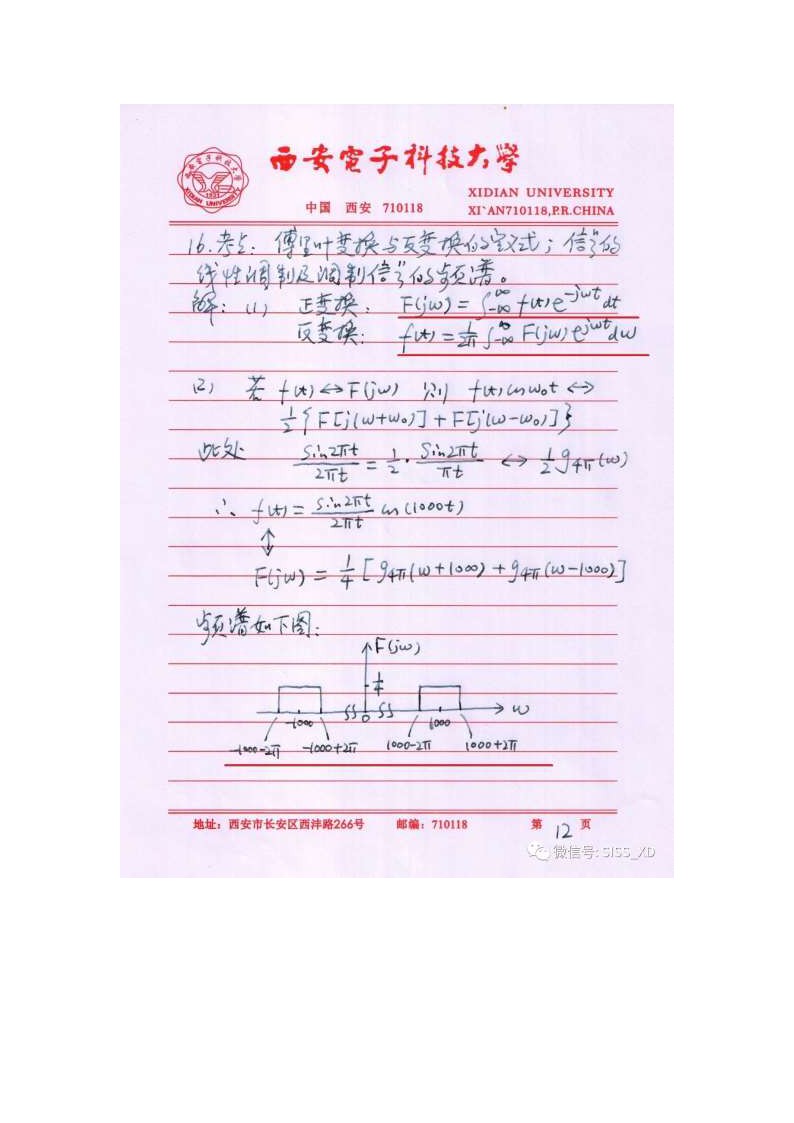 西安電子科技大學
XIDIAN UNIVERSITY
中国 西安 710118
XI`AN710118,P.R.CHINA
16.考点:傅里叶变换与反变换的定义式;信号的
线性调制及调制信号的频谱。
解:(1) 正变换: F(jω) = ∫_{-∞}^{∞} f(t) e^{-jωt} dt
反变换: f(t) = 1/2π ∫_{-∞}^{∞} F(jω) e^{jωt} dω
(2) 若 f(t) ↔ F(jω) 则 f(t) cos ω₀t ↔
1/2 { F[j(ω+ω₀)] + F[j(ω-ω₀)] }
此处 sin2πt/2πt = 1/2 · sin2πt/πt ↔ 1/2 g_{4π}(ω)
∴ f(t) = sin2πt/2πt cos(1000t)
↕
F(jω) = 1/4 [ g_{4π}(ω+1000) + g_{4π}(ω-1000) ]
频谱如下图:
F(jω)
1/4
-1000 0 1000 ω
-1000-2π -1000+2π 1000-2π 1000+2π
地址:西安市长安区西沣路266号 邮编:710118 第 12 页
微信号: SISS_XD
XIDIAN UNIVERSITY